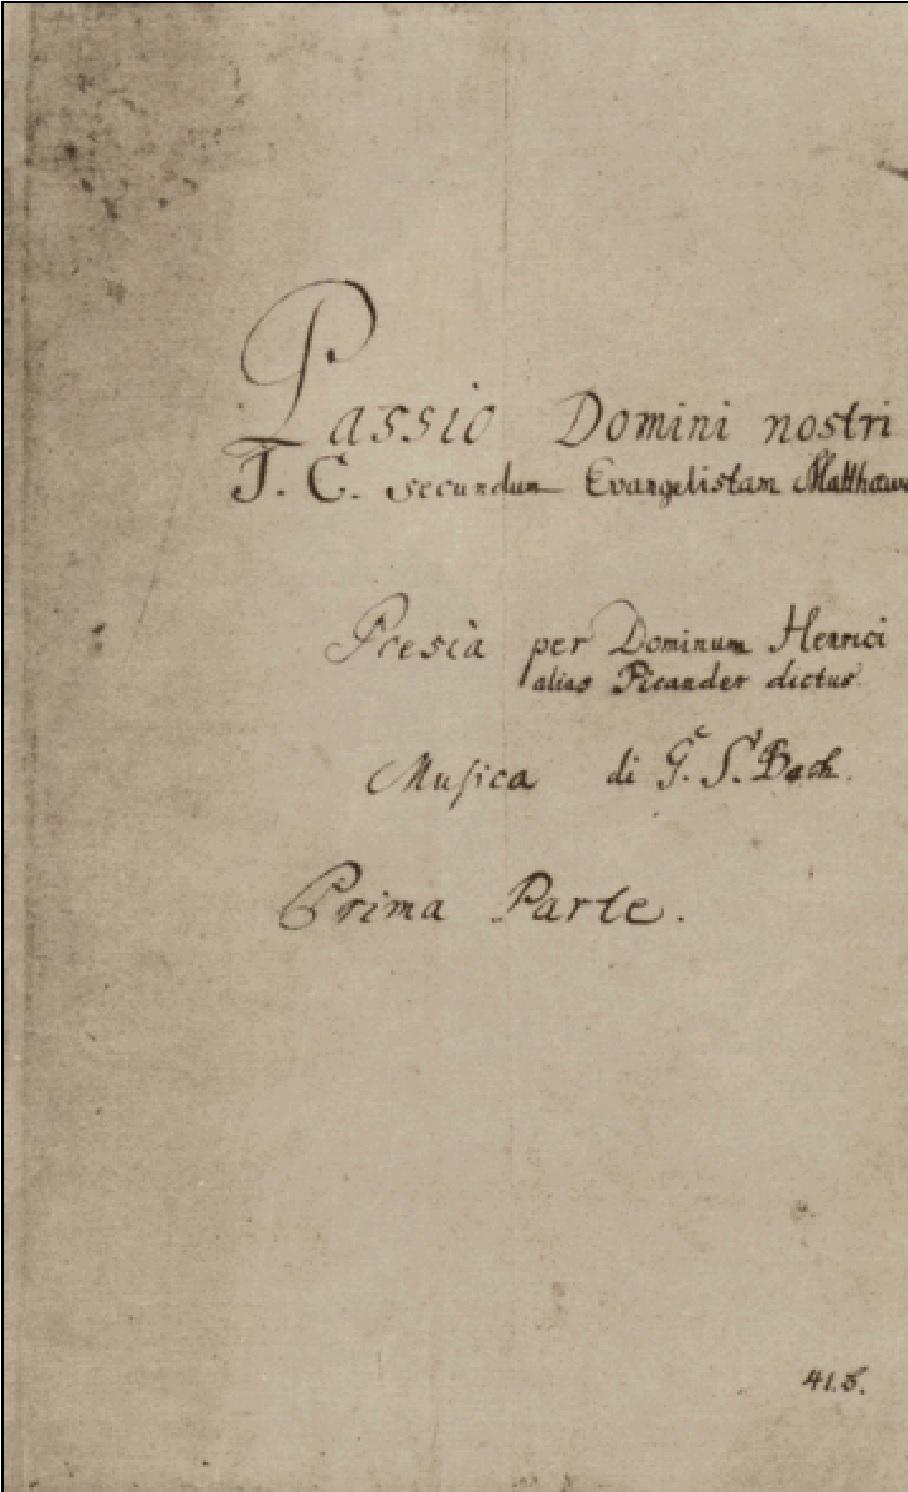 Passio Domini nostri
J. C. secundum Evangelistam
Poesia per Dominum Henrici
alias Picander dictus
Musica di G. S. Bach.
Prima Parte.